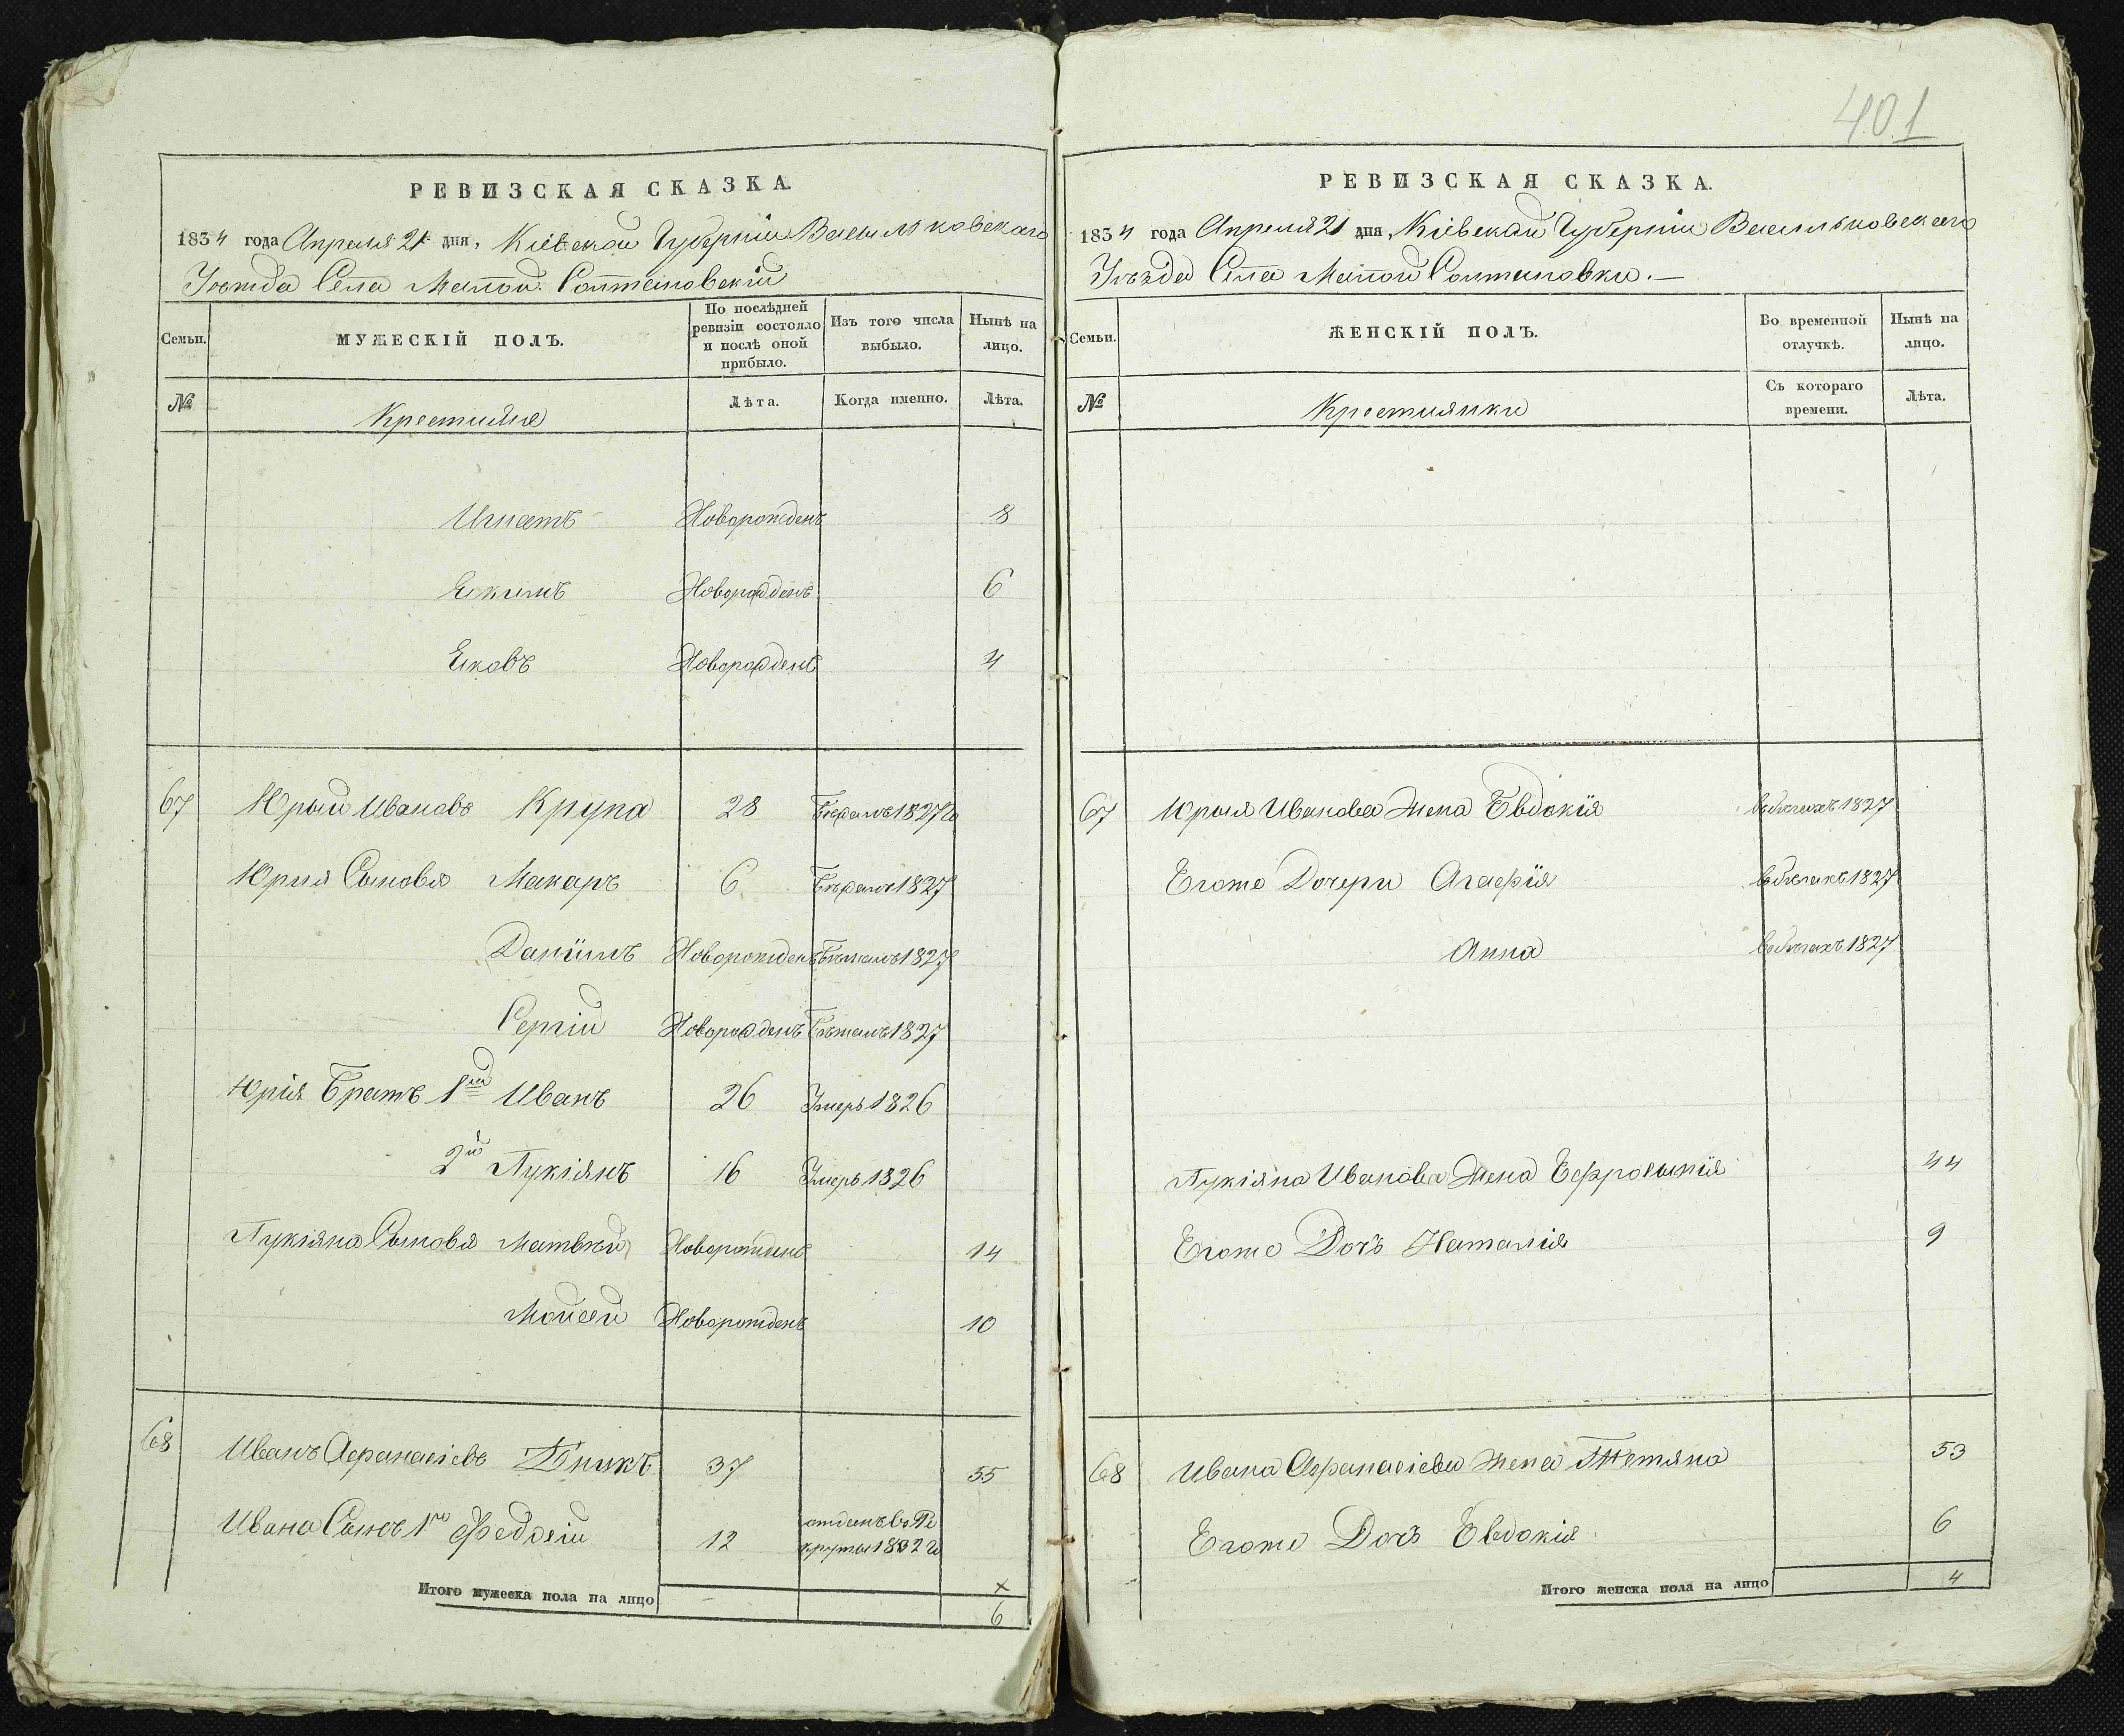 РЕВИЗСКАЯ СКАЗКА.
1834 года Апреля 21 дня, Кіевской Губерніи Васильковскаго
Уезда Села Малой Солтановский
Семьи.
МУЖЕСКІЙ ПОЛЪ.
По послѣдней ревизіи состояло и послѣ оной прибыло.
Изъ того числа выбыло.
Нынѣ на лицо.
№
Крестияне
Лѣта.
Когда именно.
Лѣта.
Игнатъ Новорожденъ 8
Екимъ Новорожденъ 6
Яковъ Новорожденъ 4
67 Юрый Ивановъ Крупа 28 Бежалъ 1827
Юрия Сыновя Макаръ 6 Бежалъ 1827
Даніилъ Новорожденъ Бежалъ 1827
Сергій Новорожденъ Бежалъ 1827
Юрія Братъ 1й Иванъ 26 Умеръ 1826
2й Лукіянъ 16 Умеръ 1826
Лукіяна Сыновя Матвѣй Новорожденъ 14
Мойсей Новорожденъ 10
68 Иванъ Афанасіевъ 37 55
Ивана Сынъ 1й Федосій 12 отданъ въ Ре
круты 1832 го
Итого мужеска пола на лицо
6
401
РЕВИЗСКАЯ СКАЗКА.
1834 года Апреля 21 дня, Кіевской Губерніи Васильковскаго
Уѣзда Села Малой Солтановки.—
Семьи.
ЖЕНСКІЙ ПОЛЪ.
Во временной отлучкѣ.
Нынѣ на лицо.
№
Крестиянки
Съ котораго времени.
Лѣта.
67 Юрыя Иванова Жена Евдокія въ бегахъ 1827
Егоже Дочери Агафія въ бегахъ 1827
Анна въ бегахъ 1827
Лукіяна Иванова Жена Ефросынія 44
Егоже Дочъ Наталія 9
68 Ивана Афанасіева Жена Тетяна 53
Егоже Дочъ Евдокія 6
Итого женска пола на лицо 4